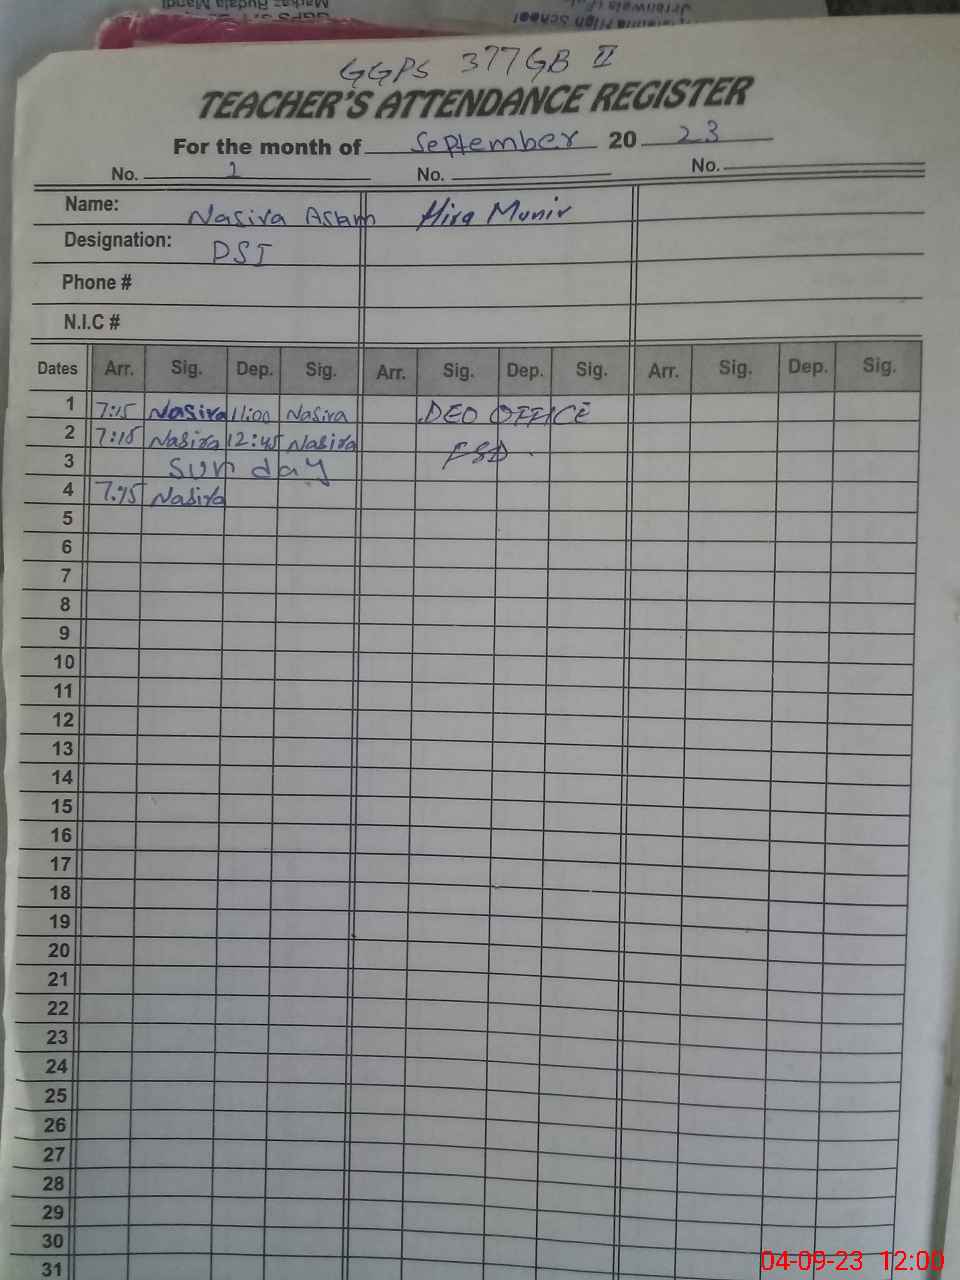 GGPS 377GB II
TEACHER'S ATTENDANCE REGISTER
For the month of September 20 23
No. 1 No. No.
Name: Nasira Aslam Hira Munir
Designation: PST
Phone #
N.I.C #
Dates Arr. Sig. Dep. Sig. Arr. Sig. Dep. Sig. Arr. Sig. Dep. Sig.
1 7:15 Nasira 11:00 Nasira DEO OFFICE
2 7:15 Nasira 12:45 Nasira FSD
3 Sunday
4 7:15 Nasira
5
6
7
8
9
10
11
12
13
14
15
16
17
18
19
20
21
22
23
24
25
26
27
28
29
30
31
04-09-23 12:00